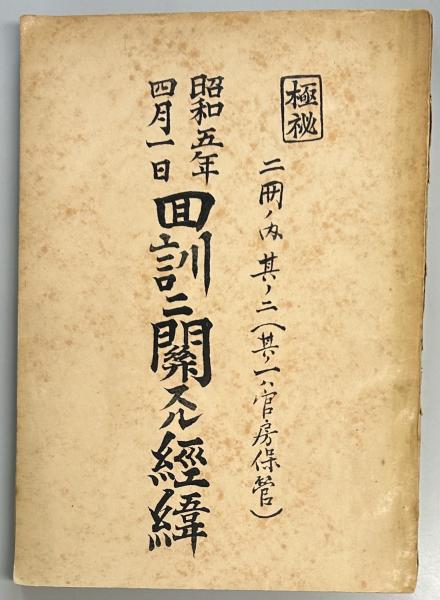 極秘
二冊ノ内其ノ二(其ノ一ハ官房保管)
昭和五年
四月一日
回訓ニ關スル經緯